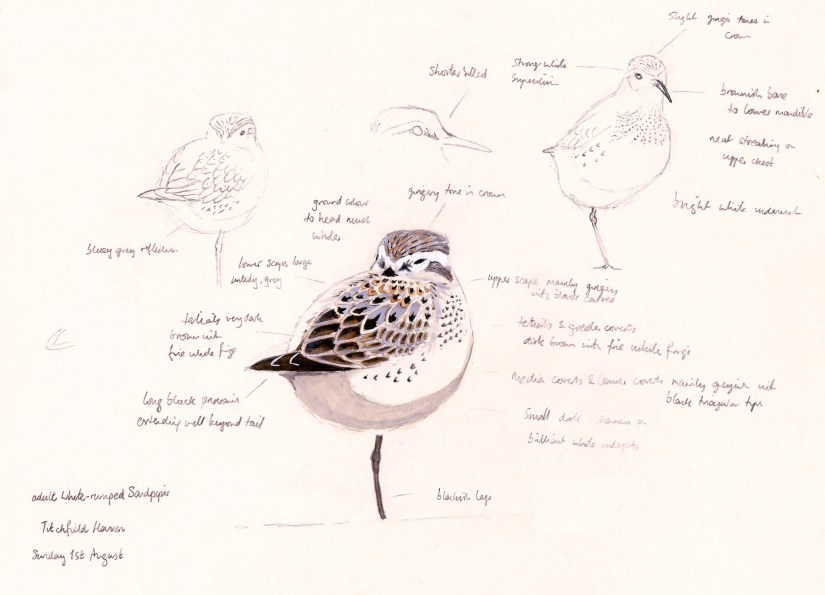 Slight ginger tones in
crown
Strong white
Supercilium
Shorter billed
brownish base
to lower mandible
neat streaking on
upper chest
bright white undersides
gingery tone in crown
ground colour
to head much
whiter
bluey grey reflection
lower scaps large
untidy, grey
upper scaps mainly gingery
with black centres
tertials very dark
brown with
fine white fringe
tertials & greater coverts
dark brown with fine white fringe
median coverts & lesser coverts mainly greyish with
black triangular tips
long black primaries
extending well beyond tail
Small dark on
brilliant white underparts
blackish legs
adult White-rumped Sandpiper
Titchfield Haven
Sunday 1st August